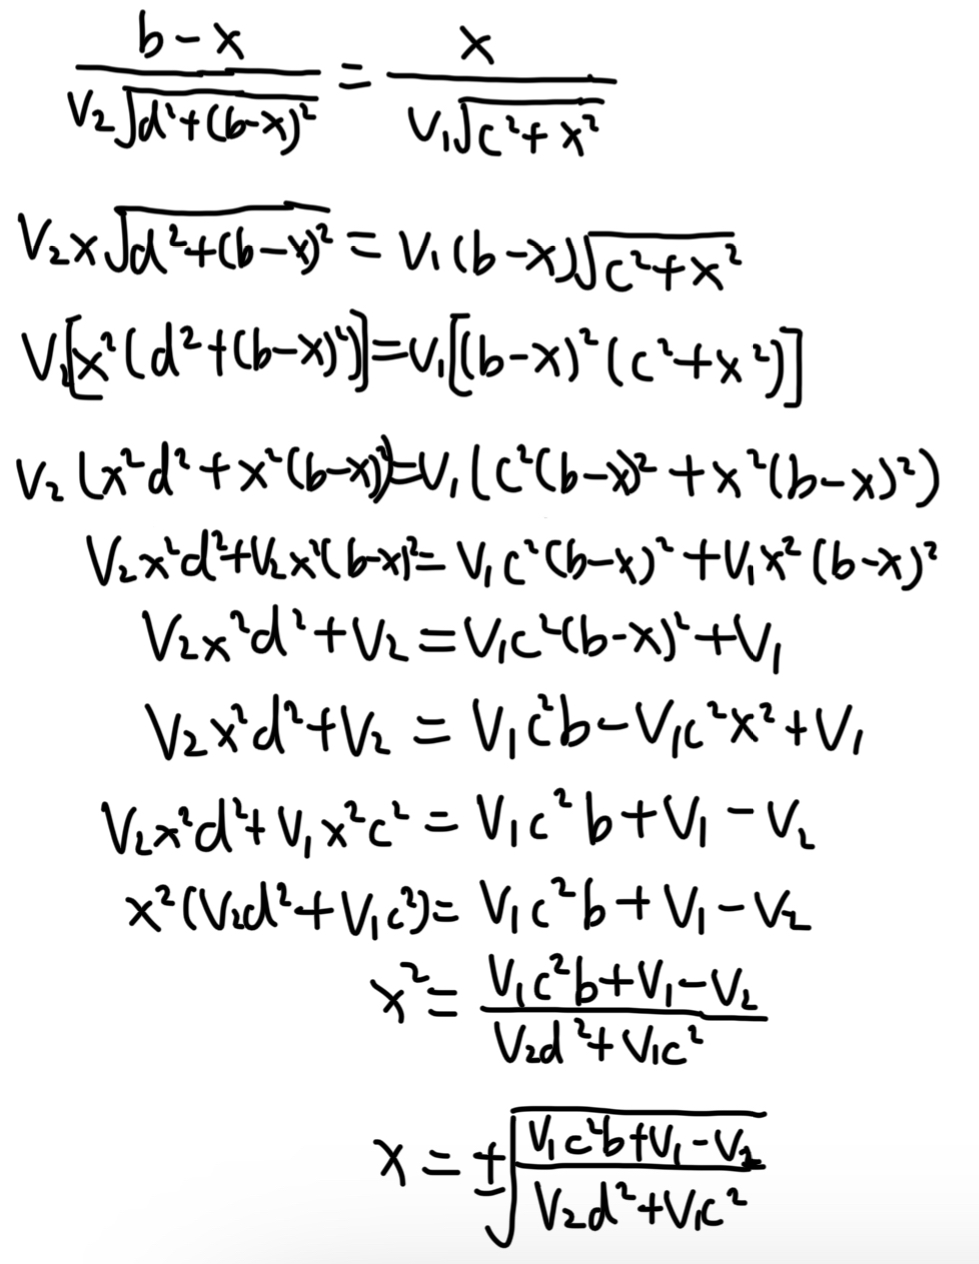 \frac{b-x}{V_2\sqrt{d^2+(b-x)^2}} = \frac{x}{V_1\sqrt{c^2+x^2}}
V_2x\sqrt{d^2+(b-x)^2} = V_1(b-x)\sqrt{c^2+x^2}
V_2[x^2(d^2+(b-x)^2)]=V_1[(b-x)^2(c^2+x^2)]
V_2(x^2d^2+x^2(b-x)^2)=V_1(c^2(b-x)^2+x^2(b-x)^2)
V_2x^2d^2+V_2x^2(b-x)^2=V_1c^2(b-x)^2+V_1x^2(b-x)^2
V_2x^2d^2+V_2=V_1c^2(b-x)^2+V_1
V_2x^2d^2+V_2=V_1c^2b-V_1c^2x^2+V_1
V_2x^2d^2+V_1x^2c^2=V_1c^2b+V_1-V_2
x^2(V_2d^2+V_1c^2)=V_1c^2b+V_1-V_2
x^2=\frac{V_1c^2b+V_1-V_2}{V_2d^2+V_1c^2}
x=\pm\sqrt{\frac{V_1c^2b+V_1-V_2}{V_2d^2+V_1c^2}}